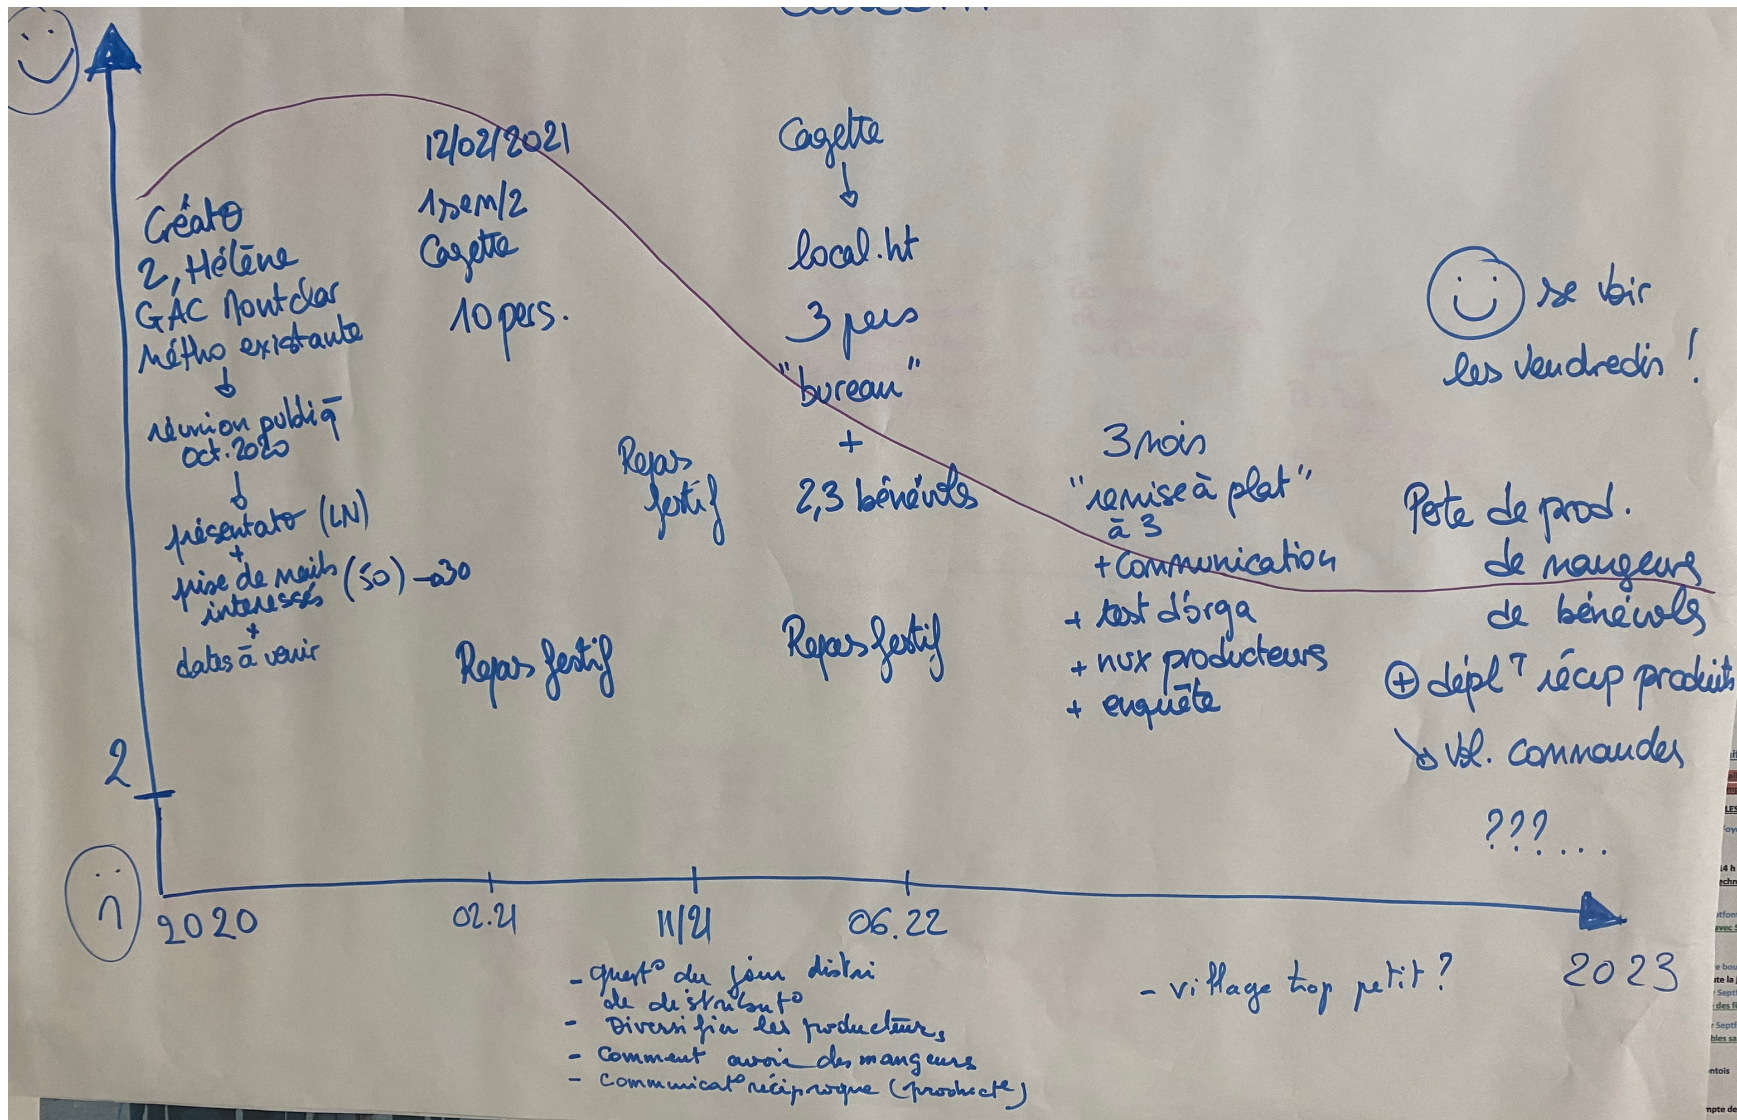 Créato
2, Hélène
GAC Montclar
Métho existante
réunion publiq
oct. 2020
présentato (LN)
+
prise de mails (50) → 30
interessés
+
dates à venir
2
12/02/2021
1 sem/2
Cagette
10 pers.
Repas festif
Repas
festif
Cagette
local.ht
3 pers
"bureau"
+
2,3 bénévols
Repas festif
3 mois
"remise à plat"
à 3
+ communication
+ test d'orga
+ nvx producteurs
+ enquête
se voir
les vendredis !
Perte de prod.
de mangeurs
de bénévols
⊕ dépl^t récup produits
↘ vol. commandes
???...
2020
02.21
11/21
06.22
2023
- quest° du jour distri
de distribut°
- Diversifier les producteurs
- Comment avoir des mangeurs
- Communicat° réciproque (product^e)
- village trop petit ?